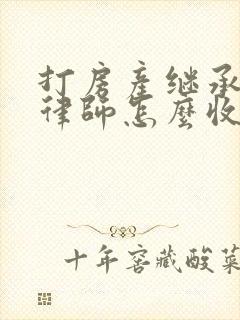 打房產繼承
律師怎麼收
十年窖藏酸菜